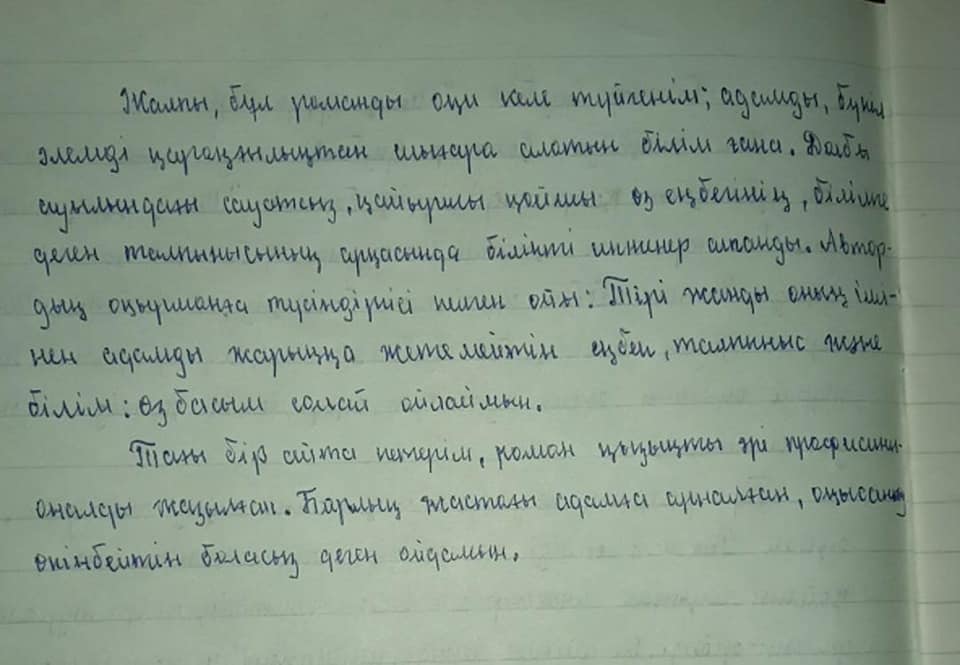 Жалпы, бұл романды оқи келе түйгенім; адамды, бүкіл
әлемді қараңғылықтан шығара алатын білім ғана.
ауылындағы сауатсыз, қойшы өз еңбегінің, білімге
деген талпынысының арқасында білікті инженер атанды. Автор-
дың оқырманға түсіндіргісі келген ойы: Тірі жанды оның ілі-
нен адамды жарыққа жетелейтін еңбек, талпыныс және
білім: өз басым солай ойлаймын.
Тағы бір айта кетерім, роман қызықты әрі професиани-
оналды жазылған. Барлық жастағы адамға арналған, оқысаңыз
өкінбейтін боласыз деген ойдамын.